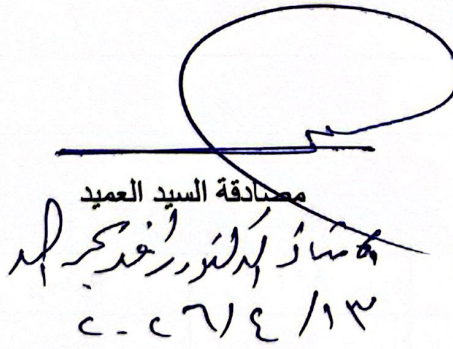 مصادقة السيد العميد
الاستاذ الدكتور رافد
٢٠٢٦/٤/١٣